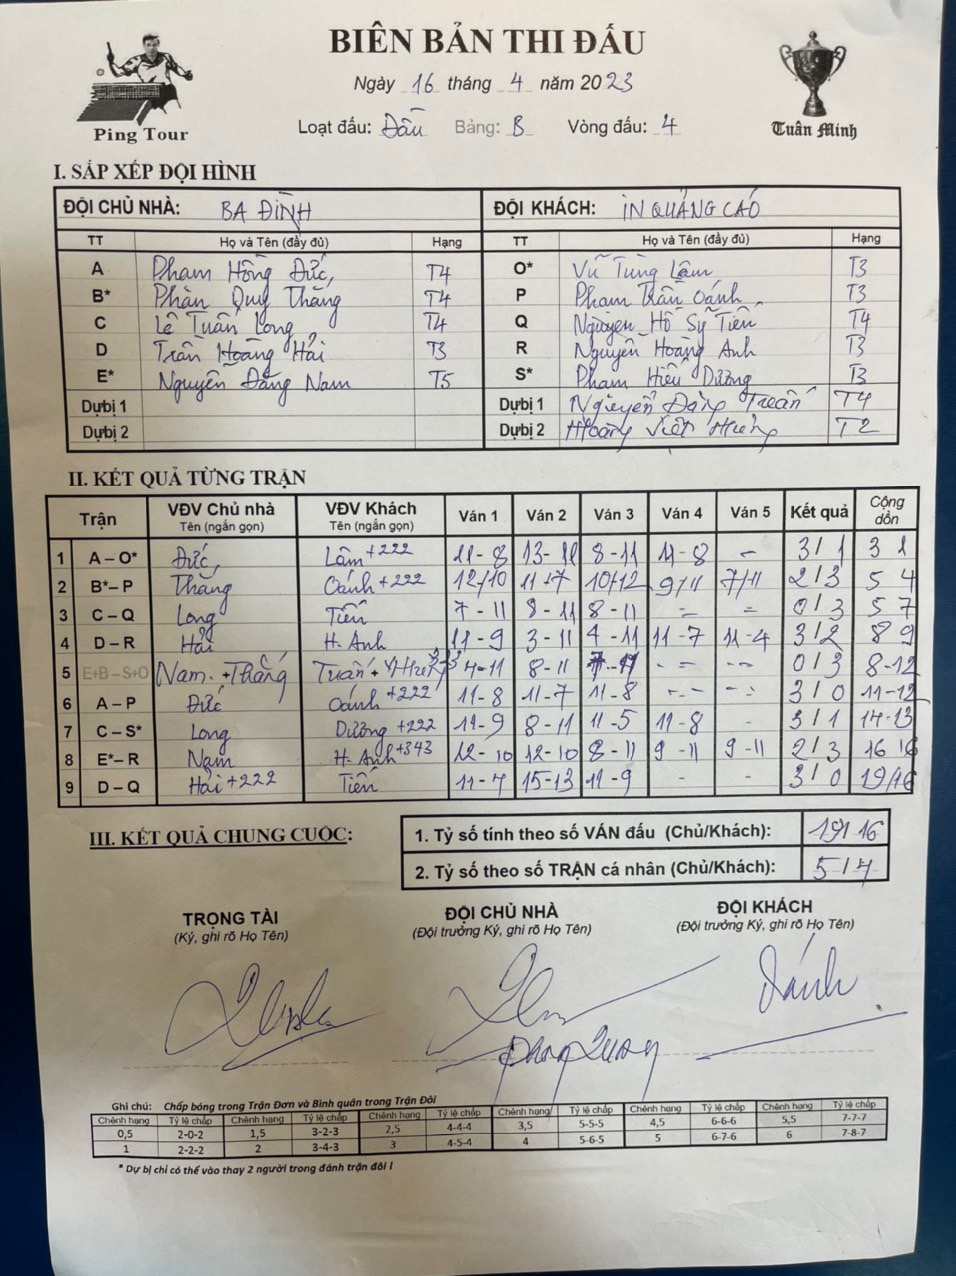 BIÊN BẢN THI ĐẤU
Ngày 16 tháng 4 năm 2023
Ping Tour
Loạt đấu: Đầu Bảng: B Vòng đấu: 4
Tuấn Minh
I. SẮP XẾP ĐỘI HÌNH
ĐỘI CHỦ NHÀ: BA ĐÌNH ĐỘI KHÁCH: IN QUẢNG CÁO
TT Họ và Tên (đầy đủ) Hạng TT Họ và Tên (đầy đủ) Hạng
A Phạm Hồng Đức T4 O* Vũ Tùng Lâm T3
B* Phan Quý Thắng T4 P Phạm Trần Oánh T3
C Lê Tuấn Long T4 Q Nguyễn Hồ Sỹ Tiến T4
D Trần Hoàng Hải T3 R Nguyễn Hoàng Anh T3
E* Nguyễn Đăng Nam T5 S* Phạm Hiếu Dương T3
Dự bị 1 Dự bị 1 Nguyễn Đăng Tuấn T4
Dự bị 2 Dự bị 2 Hoàng Việt T2
II. KẾT QUẢ TỪNG TRẬN
Trận VĐV Chủ nhà Tên (ngắn gọn) VĐV Khách Tên (ngắn gọn) Ván 1 Ván 2 Ván 3 Ván 4 Ván 5 Kết quả Cộng dồn
1 A – O* Đức Lâm +222 11-8 13-11 8-11 11-8 - 3/1 3 1
2 B* – P Thắng Oánh +222 12/10 11-7 10/12 9/11 7/11 2/3 5 4
3 C – Q Long Tiến 7-11 8-11 8-11 - - 0/3 5 7
4 D – R Hải H. Anh 11-9 3-11 4-11 11-7 11-4 3/2 8 9
5 E+B – S+O Nam + Thắng Tuấn + 4-11 8-11 -- -- 0/3 8-12
6 A – P Đức Oánh +222 11-8 11-7 11-8 -- -- 3/0 11-12
7 C – S* Long Dương +222 11-9 8-11 11-5 11-8 - 3/1 14-13
8 E* – R Nam H. Anh +343 12-10 12-10 8-11 9-11 9-11 2/3 16 16
9 D – Q Hải +222 Tiến 11-7 15-13 11-9 - - 3/0 19/16
III. KẾT QUẢ CHUNG CUỘC:
1. Tỷ số tính theo số VÁN đấu (Chủ/Khách): 19/16
2. Tỷ số theo số TRẬN cá nhân (Chủ/Khách): 5/4
TRỌNG TÀI ĐỘI CHỦ NHÀ ĐỘI KHÁCH
(Ký, ghi rõ Họ Tên) (Đội trưởng Ký, ghi rõ Họ Tên) (Đội trưởng Ký, ghi rõ Họ Tên)
Oánh
Ghi chú: Chấp bóng trong Trận Đơn và Bình quân trong Trận Đôi
Chênh hạng Tỷ lệ chấp Chênh hạng Tỷ lệ chấp Chênh hạng Tỷ lệ chấp Chênh hạng Tỷ lệ chấp Chênh hạng Tỷ lệ chấp Chênh hạng Tỷ lệ chấp
0,5 2-0-2 1,5 3-2-3 2,5 4-4-4 3,5 5-5-5 4,5 6-6-6 5,5 7-7-7
1 2-2-2 2 3-4-3 3 4-5-4 4 5-6-5 5 6-7-6 6 7-8-7
* Dự bị chỉ có thể vào thay 2 người trong đánh trận đôi !